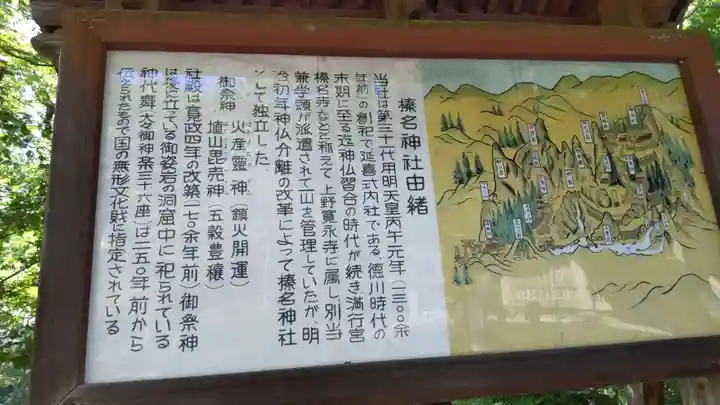 榛名神社由緒
当社は第三十代用明天皇丙午元年(一三〇〇余
年前)の創祀で延喜式内社である。徳川時代の
末期に至る迄神仏習合の時代が続き満行宮
榛名寺などと称えて上野寛永寺に属し別当
兼学頭が派遣されて一山を管理していたが、明
治初年神仏分離の改革によって榛名神社
として独立した
御祭神 火産霊神(鎮火開運)
埴山毘売神(五穀豊穣)
社殿は寛政四年の改築(一七〇余年前)御祭神
は後に立っている御姿岩の洞窟中に祀られている
神代舞太々御神楽(三十六座)は二五〇年前から
伝えられたもので国の無形文化財に指定されている